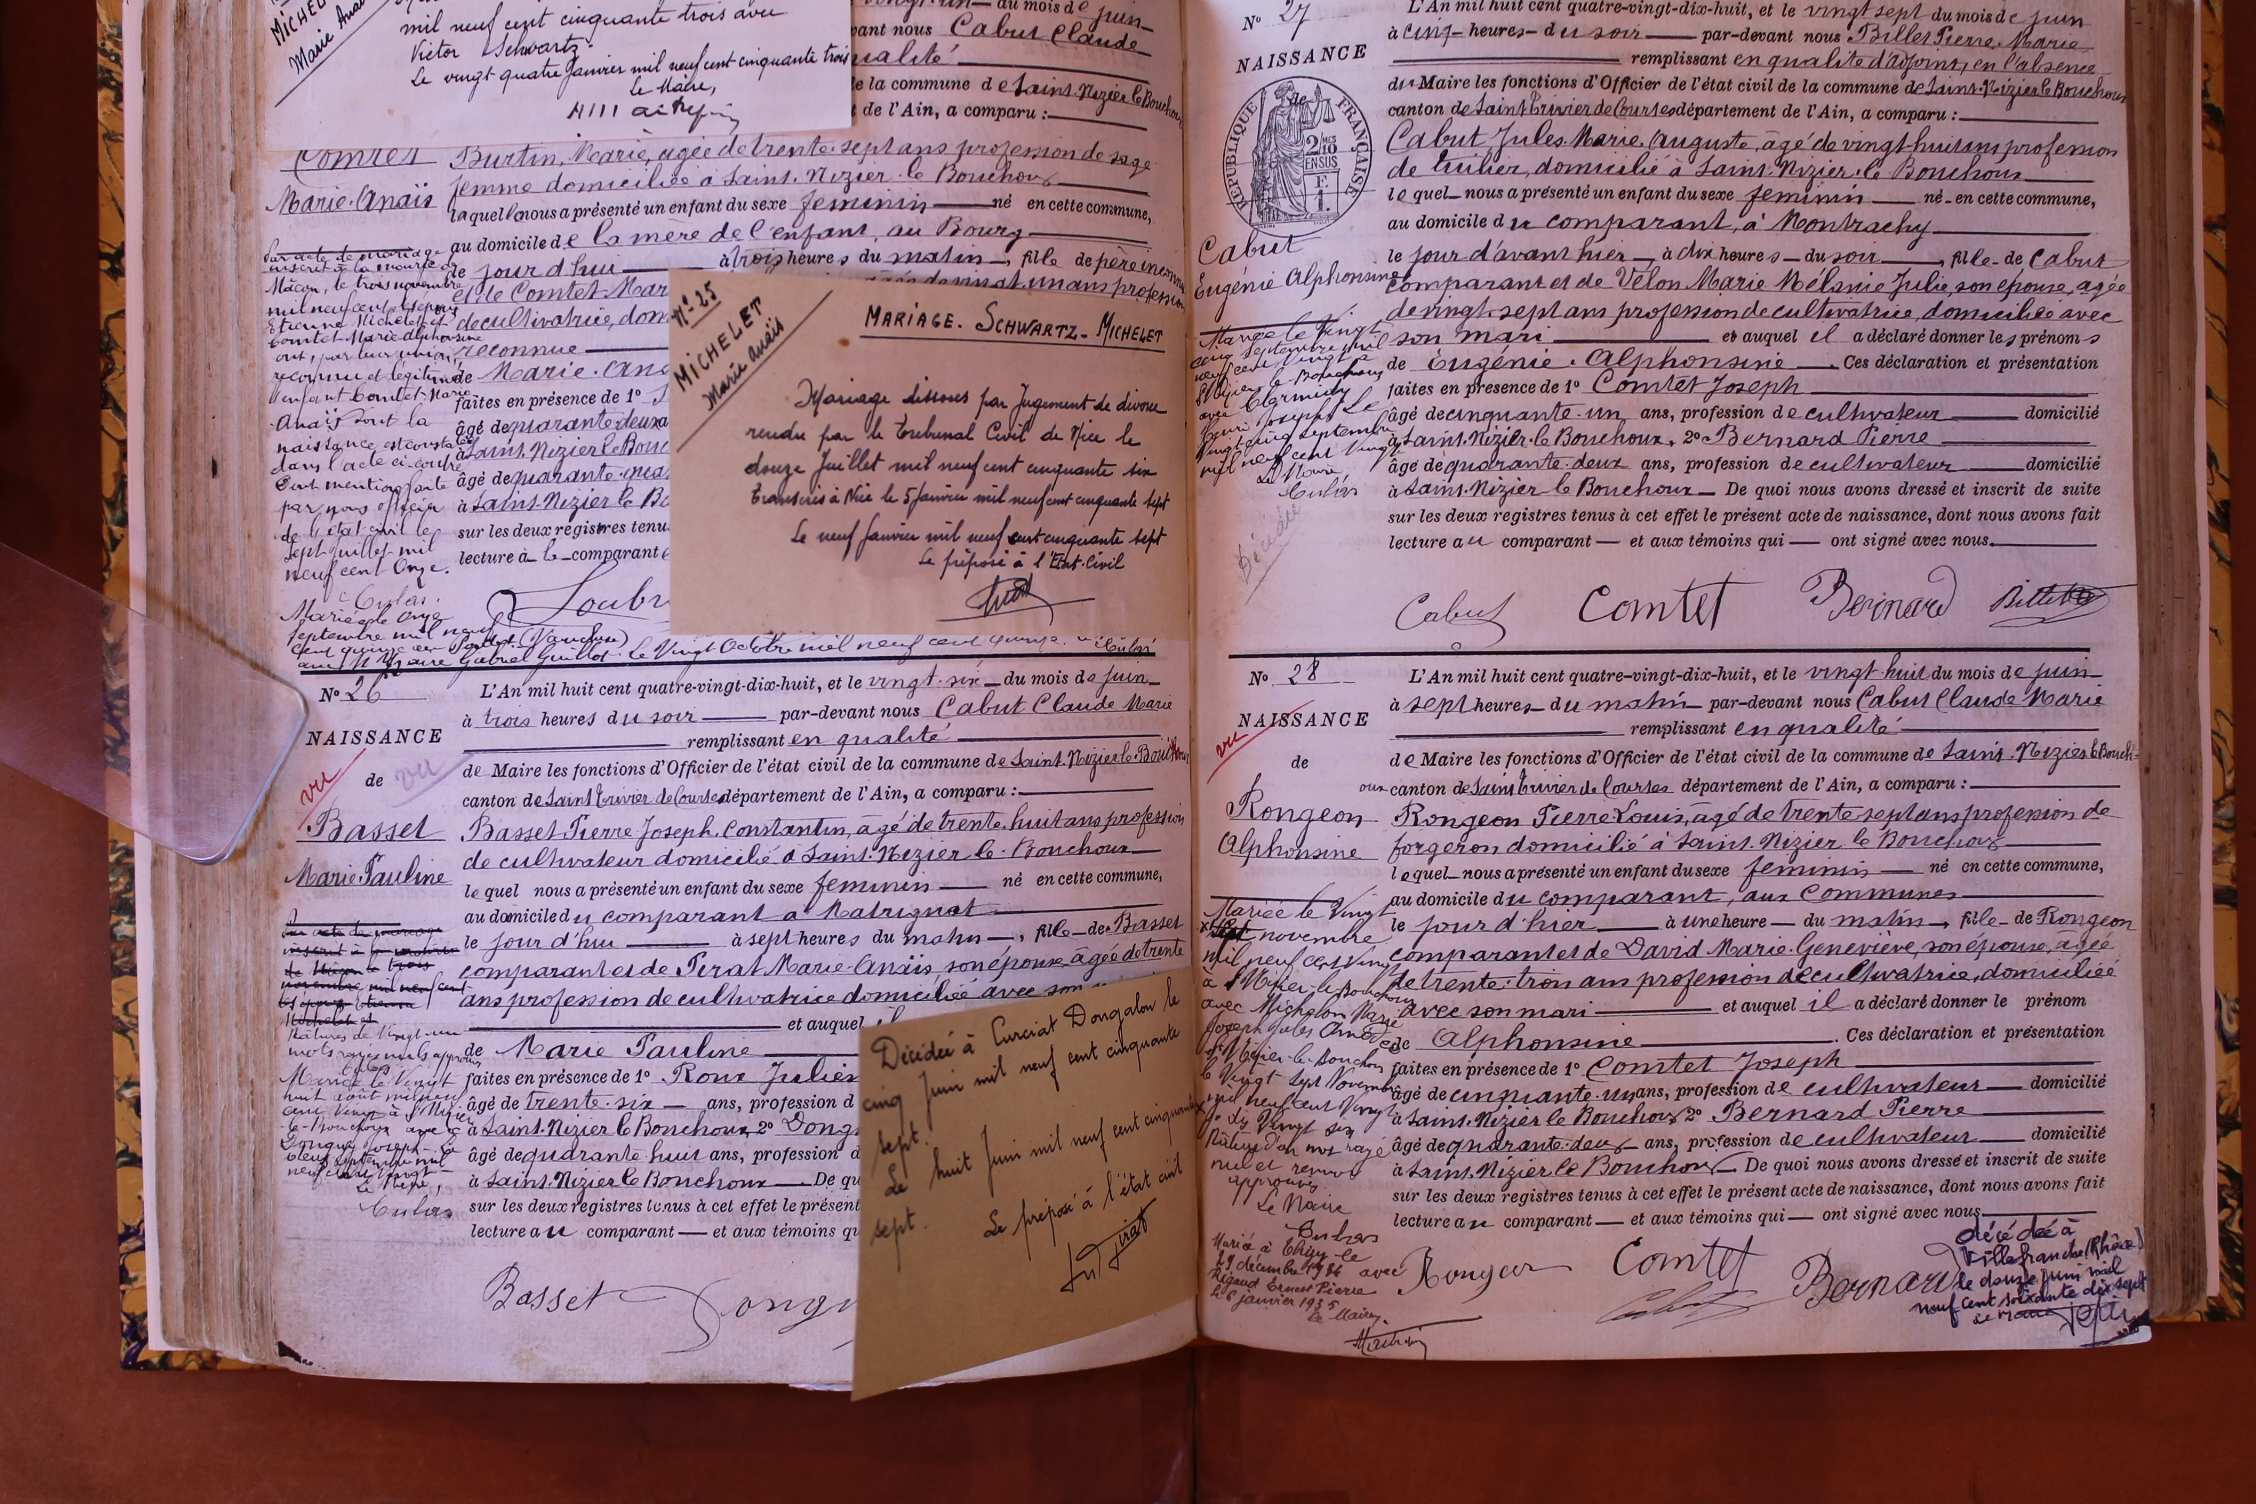 MICHEL
Marie Anaï
mil neuf cent cinquante trois avec
Victor Schwartz.
Le vingt quatre Janvier mil neuf cent cinquante trois
Le Maire,
au mois de juin
vant nous Cabut Claude
ualité
e la commune de Saint-Nizier le Bouchoux
de l'Ain, a comparu :
Comtet
Marie-Anaïs
Burtin, Marie, âgée de trente-sept ans profession de sage
femme domiciliée à Saint-Nizier-le Bouchoux
laquelle nous a présenté un enfant du sexe féminin né en cette commune,
au domicile de la mère de l'enfant, au Bourg
le jour d'hui à trois heures du matin, fille de père inconnu
et de Comtet Mar
de cultivatrice, dom
reconnue
de Marie-Ana
faites en présence de 1°
âgé de quarante-deux a
à Saint-Nizier le Bouc
âgé de quarante-
à Saint-Nizier le Bo
sur les deux registres tenu
lecture à la comparant
Par acte de mariage
inscrit à la mairie de
Mâcon, le trois novembre
mil neuf cent
Etienne Michelet et
Comtet Marie Alphonsine
ont, par leur union,
reconnu et légitimé
l'enfant Comtet Marie
Anaïs dont la
naissance est constatée
dans l'acte ci-contre
Dont mention faite
par nous officier
de l'état civil le
sept juillet mil
neuf cent onze.
Mariée le onze
septembre mil neuf
cent quinze
Gabriel Guillot. Le vingt Octobre mil neuf cent quinze.
N°-25
MICHELET
Marie Anaïs
MARIAGE. SCHWARTZ-MICHELET
Mariage dissous par Jugement de divorce
rendu par le Tribunal Civil de Nice le
douze Juillet mil neuf cent cinquante six
transcris à Nice le 5 Janvier mil neuf cent cinquante sept
Le neuf Janvier mil neuf cent cinquante sept
Le préposé à l'Etat-Civil
N° 26
NAISSANCE
de
vu
vu
Basset
Marie Pauline
L'An mil huit cent quatre-vingt-dix-huit, et le vingt-six du mois de juin
à trois heures du soir par-devant nous Cabut Claude Marie
remplissant en qualité
de Maire les fonctions d'Officier de l'état civil de la commune de Saint-Nizier le Bouchoux
canton de Saint Trivier de Courtes département de l'Ain, a comparu :
Basset Pierre Joseph Constantin, âgé de trente-huit ans profession
de cultivateur domicilié à Saint-Nizier-le-Bouchoux
lequel nous a présenté un enfant du sexe féminin né en cette commune,
au domicile du comparant à Matrignat
le jour d'hui à sept heures du matin, fille de Basset
comparant et de Pirat Marie-Anaïs, son épouse, âgée de trente
ans profession de cultivatrice domiciliée avec son
et auquel
de Marie Pauline
faites en présence de 1° Roux Julien
âgé de trente-six ans, profession d
à Saint-Nizier le Bouchoux, 2° Dong
âgé de quarante-huit ans, profession d
à Saint-Nizier le Bouchoux De qu
sur les deux registres tenus à cet effet le présent
lecture au comparant et aux témoins qu
Par acte de mariage
inscrit à la mairie
de Mâcon le trois
novembre mil neuf cent
Michelet et
Ratures de vingt-un
mots rayés nuls approuvés
Mariée le vingt
huit août mil neuf
cent vingt à St Nizier
le-Bouchoux avec
Donguy Joseph. Le
deux septembre mil
neuf cent vingt
Le Maire,
Basset
Décédée à Curciat Dongalon le
cinq Juin mil neuf cent cinquante
sept.
Le huit Juin mil neuf cent cinquante
sept.
Le préposé à l'état civil
N° 27
NAISSANCE
de
RÉPUBLIQUE FRANÇAISE
2/10
EN SUS
Cabut
Eugénie Alphonsine
L'An mil huit cent quatre-vingt-dix-huit, et le vingt sept du mois de juin
à cinq heures du soir par-devant nous Billet Pierre Marie
remplissant en qualité d'adjoint, en l'absence
du Maire les fonctions d'Officier de l'état civil de la commune de Saint-Nizier le Bouchoux
canton de Saint Trivier de Courtes département de l'Ain, a comparu :
Cabut, Jules Marie Auguste, âgé de vingt-huit ans profession
de tuilier, domicilié à Saint-Nizier-le Bouchoux
lequel nous a présenté un enfant du sexe féminin né en cette commune,
au domicile du comparant, à Montrachy
le jour d'avant hier, à dix heures du soir, fille de Cabut
comparant et de Velon Marie Mélanie Julie, son épouse, âgée
de vingt-sept ans profession de cultivatrice, domiciliée avec
son mari et auquel il a déclaré donner les prénoms
de Eugénie-Alphonsine. Ces déclaration et présentation
faites en présence de 1° Comtet Joseph
âgé de cinquante-un ans, profession de cultivateur domicilié
à Saint-Nizier-le Bouchoux, 2° Bernard Pierre
âgé de quarante-deux ans, profession de cultivateur domicilié
à Saint-Nizier le Bouchoux De quoi nous avons dressé et inscrit de suite
sur les deux registres tenus à cet effet le présent acte de naissance, dont nous avons fait
lecture au comparant et aux témoins qui ont signé avec nous.
Mariée le vingt
cinq septembre mil
neuf cent vingt à
St Nizier-le-Bouchoux
avec
Joseph Le
vingt cinq septembre
mil neuf cent vingt
Le Maire
Décédée
Cabut Comtet Bernard Billet
N° 28
NAISSANCE
de
vu
Rongeon
Alphonsine
L'An mil huit cent quatre-vingt-dix-huit, et le vingt-huit du mois de juin
à sept heures du matin par-devant nous Cabut Claude Marie
remplissant en qualité
de Maire les fonctions d'Officier de l'état civil de la commune de Saint-Nizier le Bouch-
oux canton de Saint Trivier de Courtes département de l'Ain, a comparu :
Rongeon Pierre Louis, âgé de trente-sept ans profession de
forgeron domicilié à Saint-Nizier le Bouchoux
lequel nous a présenté un enfant du sexe féminin né en cette commune,
au domicile du comparant, aux Communes
le jour d'hier à une heure du matin, fille de Rongeon
comparant et de David Marie-Geneviève, son épouse, âgée
de trente-trois ans profession de cultivatrice, domiciliée
avec son mari et auquel il a déclaré donner le prénom
de Alphonsine. Ces déclaration et présentation
faites en présence de 1° Comtet Joseph
âgé de cinquante-un ans, profession de cultivateur domicilié
à Saint-Nizier le Bouchoux 2° Bernard Pierre
âgé de quarante-deux ans, profession de cultivateur domicilié
à Saint-Nizier le Bouchoux De quoi nous avons dressé et inscrit de suite
sur les deux registres tenus à cet effet le présent acte de naissance, dont nous avons fait
lecture au comparant et aux témoins qui ont signé avec nous
Mariée le vingt
novembre
mil neuf cent vingt
à St Nizier-le-Bouchoux
avec Michelon Marie
Joseph Jules
St Nizier-le-Bouchoux
le vingt sept novembre
mil neuf cent vingt
Rature d'un mot rayé
nul et renvoi
approuvés
Le Maire
Mariée à Thizy le
29 décembre 1934 avec
Rigaud Ernest Pierre
Le 6 janvier 1935
Le Maire,
Rongeon Comtet Bernard
décédée à
Villefranche (Rhône)
le douze juin mil
neuf cent soixante dix sept
Le Maire